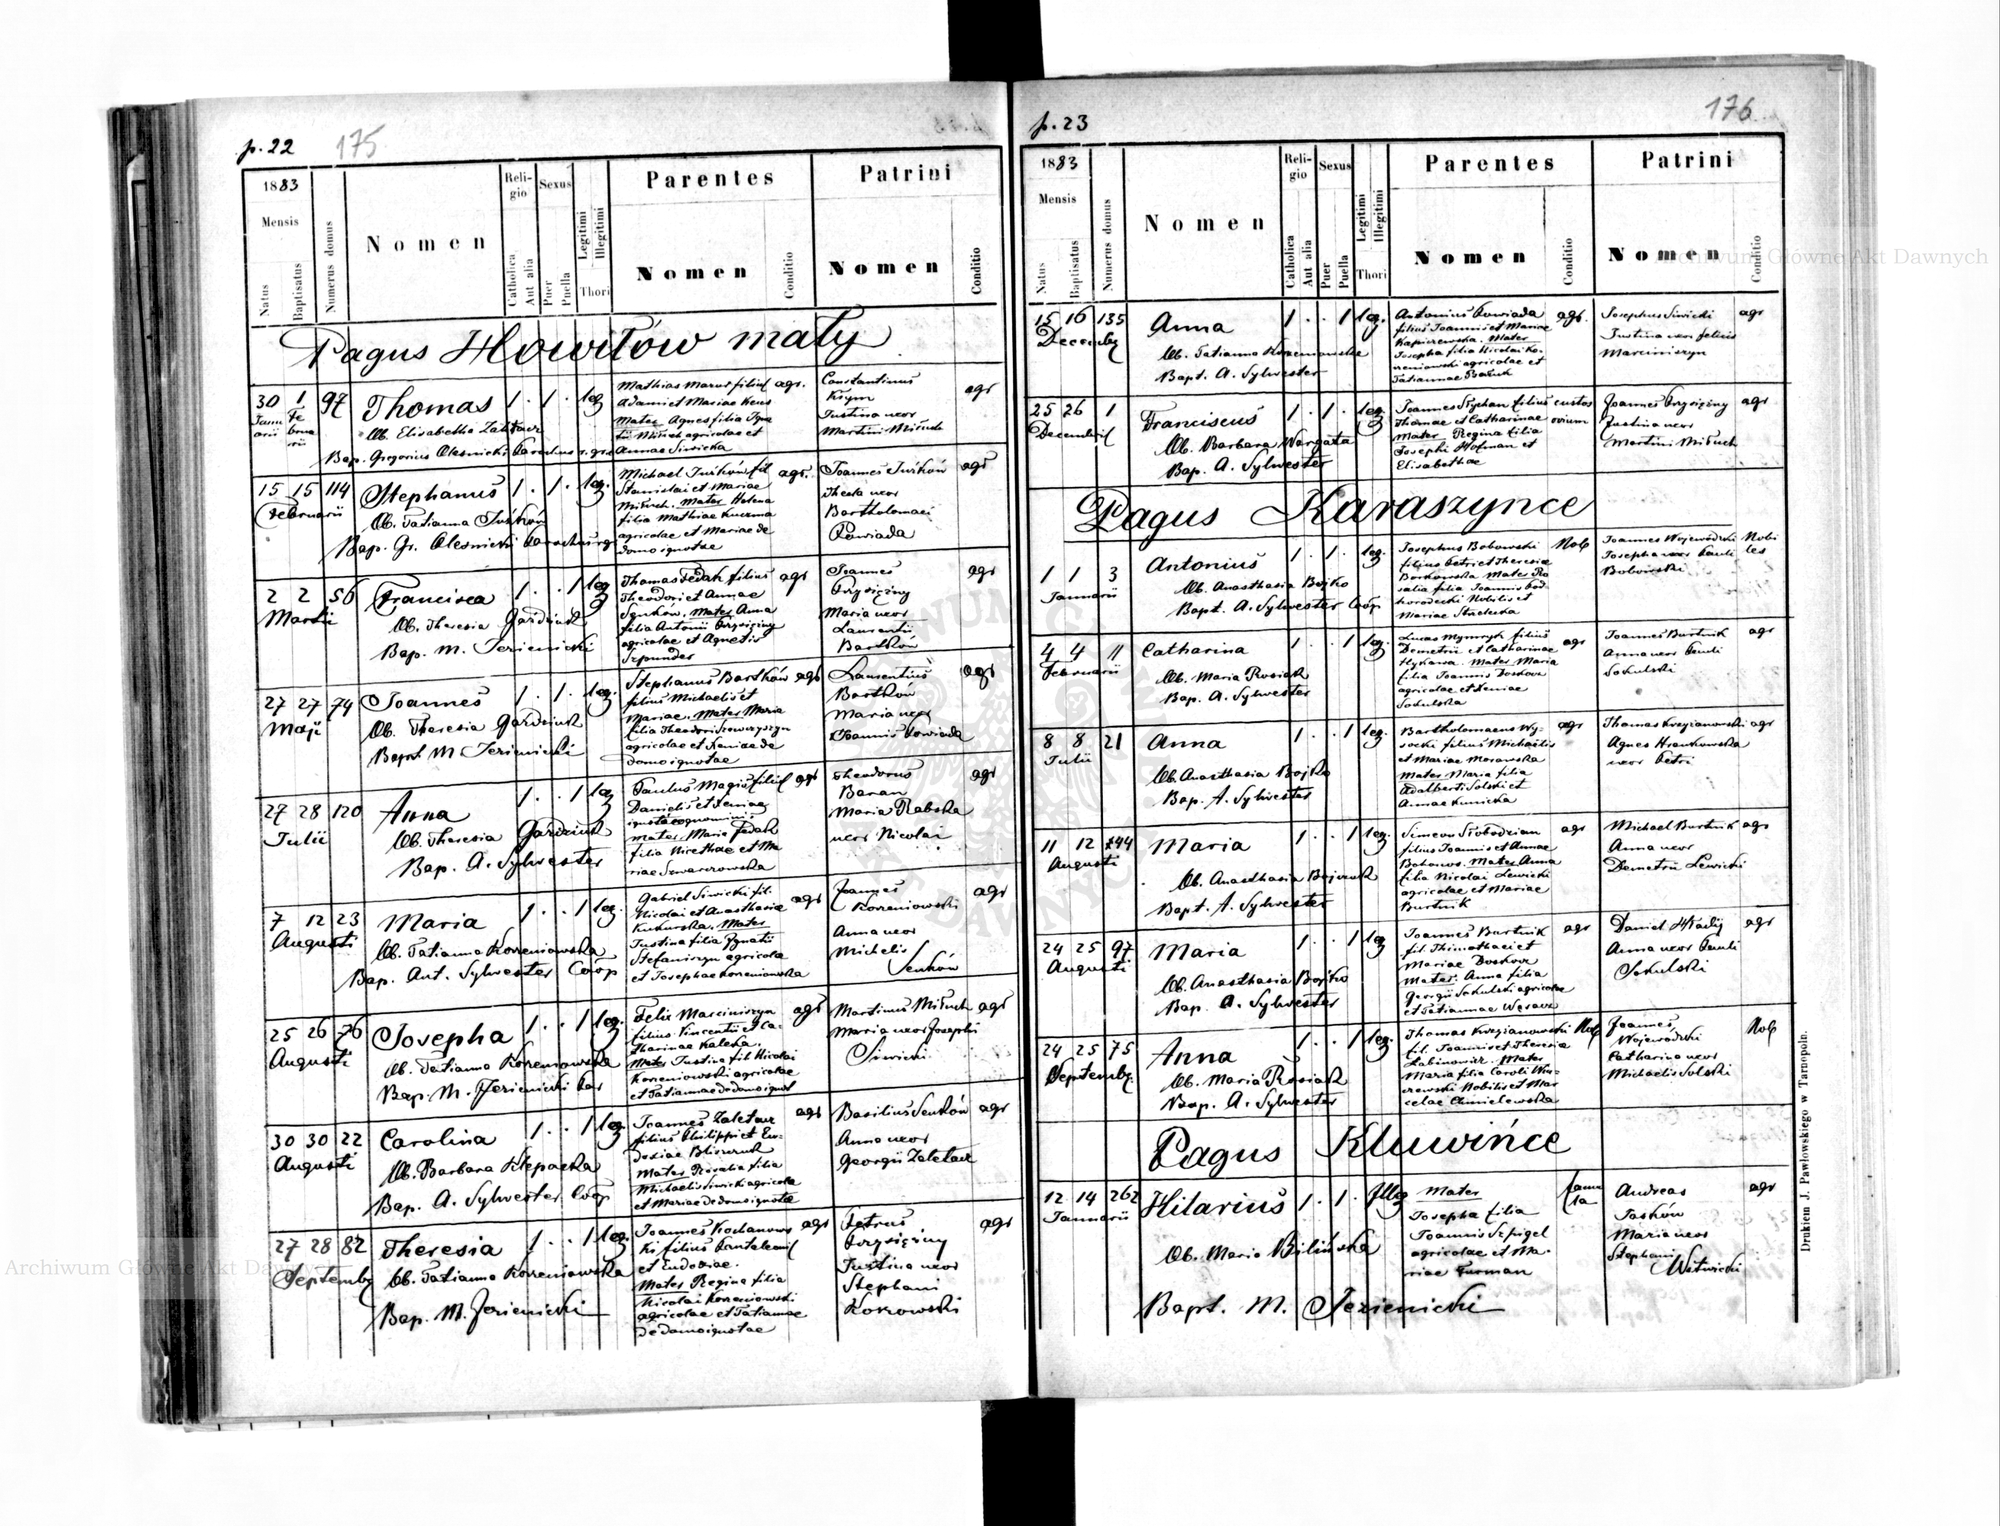 p. 22 175
1883
Mensis
Natus
Baptisatus
Numerus domus
Nomen
Religio
Catholica
Aut alia
Sexus
Puer
Puella
Legitimi
Illegitimi
Thori
Parentes
Nomen
Conditio
Patrini
Nomen
Conditio
Pagus Howiłów mały
30 1 97 Thomas 1 . 1 . leg
Januarii Februarii
Ob. Elisabetha
Bap. Gregorius Olesnicki Parochus r. gr.
Mathias filius agr.
Adami et Mariae
Mater Agnes filia Igna
tii Miśuch agricolae et
Annae Siwicka
Constantinus agr
Justina uxor
Martini Miśuch
15 15 114 Stephanus 1 . 1 . leg.
Februarii
Ob. Tatianna Juśków
Bap. Gr. Olesnicki Parochus r. g.
Michael Juśków fil. agr.
Stanislai et Mariae
Miśuch. Mater Helena
filia Mathiae Kuczma
agricolae et Mariae de
domo ignotae
Joannes Juśków agr
Thecla uxor
Bartholomaei
Powiada
2 2 56 Francisca 1 . . 1 leg
Martii
Ob. Theresia Gardziuk
Bap. M. Jezienicki
Thomas Fedak filius agr
Theodori et Annae
Senków. Mater Anna
filia Antonii Przysiężny
agricolae et Agnetis
Szpunder
Joannes agr
Przysiężny
Maria uxor
Laurentii
Bartków
27 27 74 Joannes 1 . 1 . leg.
Maji
Ob. Theresia Gardziuk
Bapt. M. Jezienicki
Stephanus Bartków agr
filius Michaelis et
Mariae. Mater Maria
filia Theodori
agricolae et Xeniae de
domo ignotae
Laurentius agr
Bartków
Maria uxor
Joannis Powiada
27 28 120 Anna 1 . . 1 leg
Julii
Ob. Theresia Gardziuk
Bap. A. Sylwester
Paulus filius agr
Danielis et Xeniae
ignotae cognominis
Mater Maria Fedak
filia Nicethae et Ma
riae Szwarczowska
Theodorus agr
Baran
Maria Rabska
uxor Nicolai
7 12 23 Maria 1 . . 1 leg.
Augusti
Ob. Tatianna Korzeniowska
Bap. Ant. Sylwester Coop
Gabriel Siwicki fil. agr
Nicolai et Anasthasiae
Kukurska. Mater
Justina filia Ignatii
Stefaniszyn agricolae
et Josephae Korzeniowska
Joannes agr
Korzeniowski
Anna uxor
Michelis
Senków
25 26 76 Josepha 1 . . 1 leg.
Augusti
Ob. Tatianna Korzeniowska
Bap. M. Jezienicki Par
Felix Marciniszyn agr
filius Vincentii et Ca-
tharinae Kaleka.
Mater Justina fil. Nicolai
Korzeniowski agricolae
et Tatiannae de domo ignot
Martinus Miśuch agr
Maria uxor Josephi
Siwicki
30 30 22 Carolina 1 . . 1 leg
Augusti
Ob. Barbara Klepacka
Bap. A. Sylwester Coop
Joannes Zaletacz agr
filius Philippi et Eu-
doxiae
Mater Rosalia filia
Michaelis Siwicki agricolae
et Mariae de domo ignotae
Basilius Senków agr
Anna uxor
Georgii Zaletacz
27 28 82 Theresia 1 . . 1 leg.
Septemb.
Ob. Tatianna Korzeniowska
Bap. M. Jezienicki
Joannes Kochanows agr
ki filius
et Eudoxiae.
Mater Regina filia
Nicolai Korzeniowski
agricolae et Tatiannae
de domo ignotae
Petrus agr
Przysiężny
Justina uxor
Stephani
Korzowski
p. 23 176
1883
Mensis
Natus
Baptisatus
Numerus domus
Nomen
Religio
Catholica
Aut alia
Sexus
Puer
Puella
Legitimi
Illegitimi
Thori
Parentes
Nomen
Conditio
Patrini
Nomen
Conditio
15 16 135 Anna 1 . . 1 leg.
Decemb.
Ob. Tatianna Korzeniowska
Bapt. A. Sylwester
Antonius Powiada agr.
filius Joannis et Mariae
Mater
Josepha filia Nicolai Ko-
rzeniowski agricolae et
Tatiannae
Josephus Siwicki agr
Justina uxor Felicis
Marciniszyn
25 26 1 Franciscus 1 . 1 . leg.
Decembris
Ob. Barbara Wargata
Bap. A. Sylwester
Joannes filius custos
Thomae et Catharinae ovium
Mater Regina filia
Josephi Hofman et
Elisabethae
Joannes Przysiężny agr
Justina uxor
Martini Miśuch
Pagus Karaszynce
1 1 3 Antonius 1 . 1 . leg.
Januarii
Ob. Anasthasia Bojko
Bapt. A. Sylwester Coop
Josephus Bobowski Nob
filius Petri et Theresiae
Borkowska Mater Ro
salia filia Joannis
Nobilis et
Mariae Strzelecka
Joannes Wojewódzki Nobi
Josepha uxor Pauli les
Bobowski
4 4 11 Catharina 1 . . 1 leg.
Februarii
Ob. Maria Rosiak
Bap. A. Sylwester
Lucas filius agr
Demetrii et Catharinae
Mater Maria
filia Joannis
agricolae et Xeniae
Sokulska
Joannes Burtnik agr
Anna uxor Pauli
Sokulski
8 8 21 Anna 1 . . 1 leg.
Julii
Ob. Anasthasia Bojko
Bap. A. Sylwester
Bartholomaeus Wy- agr
socki filius Michaelis
et Mariae Morawska
Mater Maria filia
Adalberti Solski et
Annae Kunicka
Thomas Krzyianowski agr
Agnes Hrankowska
uxor Petri
11 12 144 Maria 1 . . 1 leg.
Augusti
Ob. Anasthasia
Bapt. A. Sylwester
Simeon Słobodzian agr
filius Joannis et Annae
Mater Anna
filia Nicolai Lewicki
agricolae et Mariae
Burtnik
Michael Burtnik agr
Anna uxor
Demetrii Lewicki
24 25 97 Maria 1 . . 1 leg
Augusti
Ob. Anasthasia Bojko
Bap. A. Sylwester
Joannes Burtnik agr
fil. Thimothaei et
Mariae
Mater Anna filia
Georgii Sokulski agricolae
et Tatiannae
Daniel Hładij agr
Anna uxor Pauli
Sokulski
24 25 75 Anna 1 . . 1 leg.
Septemb.
Ob. Maria Rosiak
Bap. A. Sylwester
Thomas Krzyianowski Nob
fil. Joannis et Theresiae
Łabinowicz. Mater
Maria filia Caroli Win-
czewski Nobilis et Mar
celae Chmielewska
Joannes Nob
Wojewódzki
Catharina uxor
Michaelis Solski
Pagus Kluwińce
12 14 262 Hilarius 1 . 1 . Illeg
Januarii
Ob. Maria Bilińska
Bapt. M. Jezienicki
Mater famu
Josepha filia la
Joannis Szpigel
agricolae et Ma-
riae Furman
Andreas agr
Jaśków
Maria uxor
Stephani
Witwicki
Drukiem J. Pawłowskiego w Tarnopolu.
Archiwum Główne Akt Dawnych
Archiwum Główne Akt Dawnych